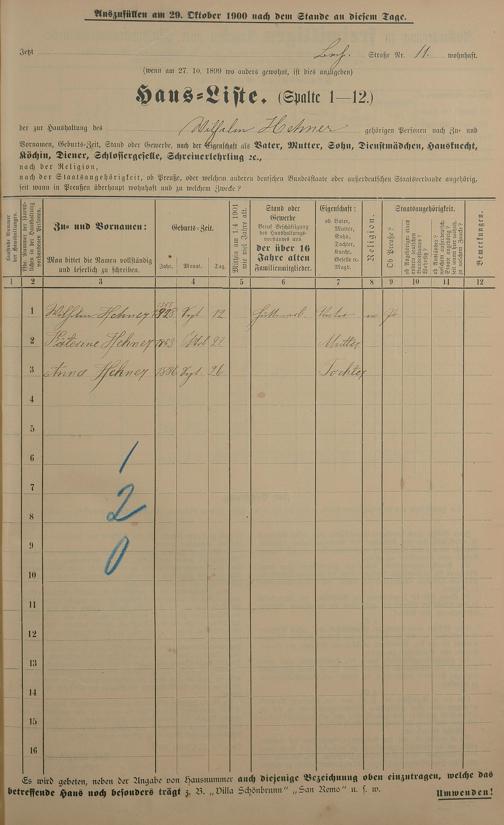 Auszufüllen am 29. Oktober 1900 nach dem Stande an diesem Tage.
Jetzt Straße Nr. 11. wohnhaft.
(wenn am 27. 10. 1899 wo anders gewohnt, ist dies anzugeben)
Haus-Liste. (Spalte 1—12.)
der zur Haushaltung des Wilhelm Hehner gehörigen Personen nach Zu- und
Vornamen, Geburts-Zeit, Stand oder Gewerbe, nach der Eigenschaft als Vater, Mutter, Sohn, Dienstmädchen, Hausknecht,
Köchin, Diener, Schlossergeselle, Schreinerlehrling ꝛc.,
nach der Religion,
nach der Staatsangehörigkeit, ob Preuße, oder welchem anderen deutschen Bundesstaate oder außerdeutschen Staatsverbande angehörig,
seit wann in Preußen überhaupt wohnhaft und zu welchem Zwecke?
Zu- und Vornamen:
Man bittet die Namen vollständig
und leserlich zu schreiben.
Geburts-Zeit.
Jahr. Monat. Tag.
Mithin am 1/4 1901
wie viel Jahre alt.
Stand oder
Gewerbe
der über 16
Jahre alten
Familienmitglieder.
Eigenschaft:
ob Vater,
Mutter,
Sohn,
Tochter,
Knecht,
Geselle o.
Magd.
Religion.
Staatsangehörigkeit.
Ob Preuße?
Bemerkungen.
1 2 3 4 5 6 7 8 9 10 11 12
1 Wilhelm Hehner 12
2 Hehner Mutter
3 Anna Hehner 1886 26 Tochter
4
5
6
7
8
9
10
11
12
13
14
15
16
1
2
0
Es wird gebeten, neben der Angabe von Hausnummer auch diejenige Bezeichnung oben einzutragen, welche das
betreffende Haus noch besonders trägt z. B. „Villa Schönbrunn" „San Remo" u. s. w. Umwenden!